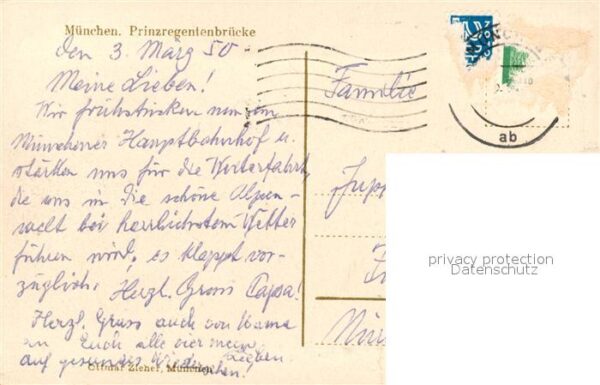 München. Prinzregentenbrücke
den 3. März 50
Meine Lieben!
Wir frühstücken nun im
Münchener Hauptbahnhof u.
stärken uns für die Weiterfahrt,
die uns in die schöne Alpen-
welt bei herrlichstem Wetter
führen wird, es klappt vor-
züglich. Herzl. Gruss Papa!
Herzl. Gruss auch von Mama
an Euch alle vier meine Lieben.
auf gesundes Wiedersehen.
Ottmar Zieher, München
Familie
Jupp
ab
privacy protection
Datenschutz